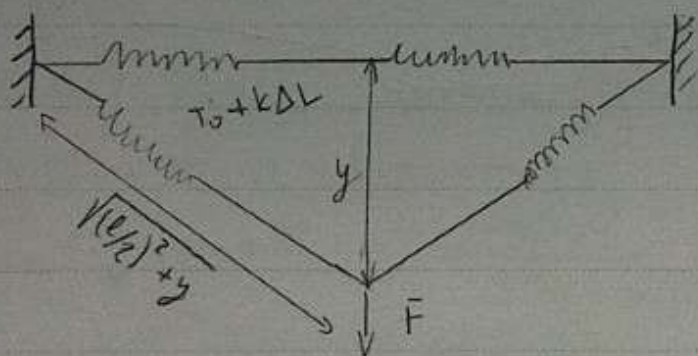 T₀ + kΔL
y
√(ℓ/2)² + y
F